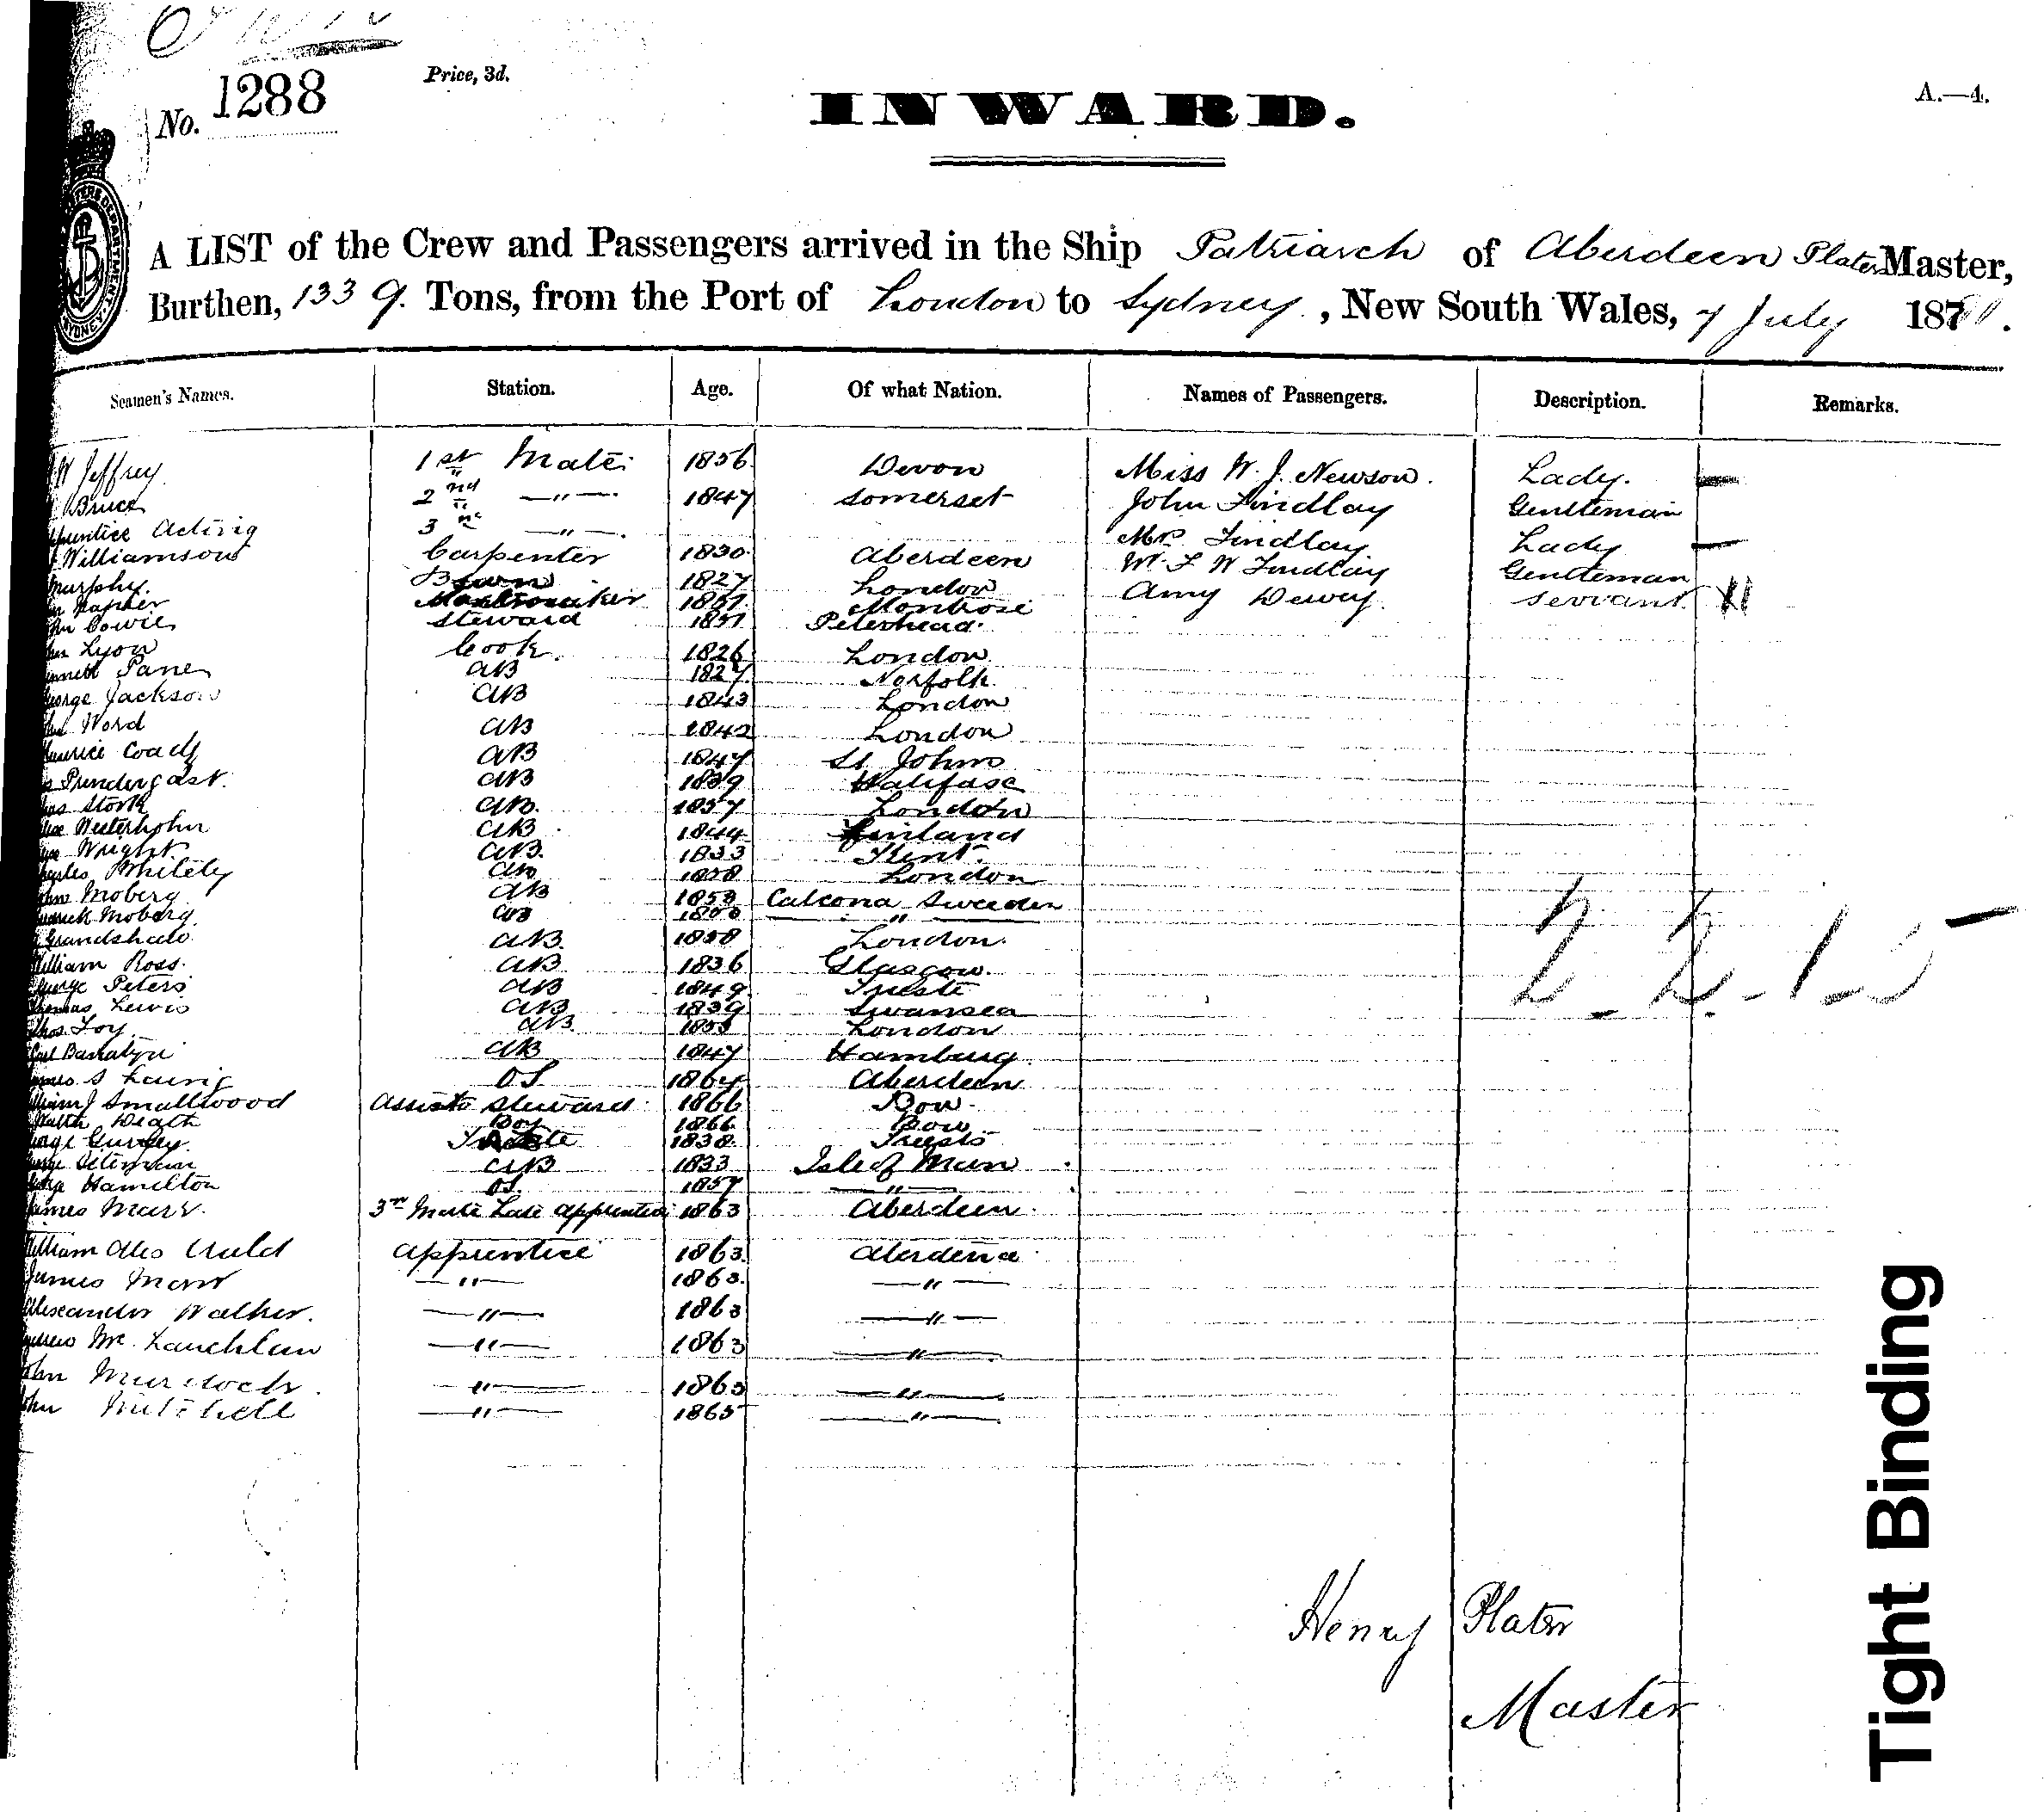 No. 1288
Price, 3d.
INWARD.
A.—4.
A LIST of the Crew and Passengers arrived in the Ship Patriarch of Aberdeen Plater Master,
Burthen, 1339. Tons, from the Port of London to Sydney, New South Wales, 7 July 18
Seamen's Names. Station. Age. Of what Nation. Names of Passengers. Description. Remarks.
W Jeffrey 1st Mate 1856 Devon Miss W. J. Newson. Lady.
Bruce 2nd —"— 1847 Somerset John Findlay Gentleman
Acting 3 —"— Findlay Lady
Williamson Carpenter 1830 Aberdeen W. F W Findlay Gentleman
Murphy. 1827 London Amy Dewey. Servant
Napier 1857 Montrose
Cowie Steward 1851 Peterhead
Lyon Cook. 1826 London
Pane AB 1827 Norfolk
Jackson AB 1843 London
Word AB 1842 London
Coady AB 1847 St Johns
Prendergast. AB 1839 Halifase
Stork AB. 1857 London
Westerholm AB 1844 Finland
Wright AB. 1833 Kent.
Whitely AB 1858 London
Moberg AB 1853 Sweeden
Moberg AB "
Grandshaw AB. 1858 London.
William Ross. AB 1836 Glasgow.
George Peters AB 1849 Trieste
Thomas Lewis AB 1839 Swansea
Thos Foy AB. 1853 London
AB 1847 Hamburg
OS 1864 Aberdeen
Smallwood Assist Steward 1866 Bow
Death Boy 1866 Bow
Gurvey. 1838 Trieste
AB 1833 Isle of Man
Hamilton OS. 1857 —"—
James Marr. 3rd Mate Late apprentice 1863 Aberdeen
William Alex Auld apprentice 1863 Aberdeen
James Marr —"— 1863. —"—
Alexander Walker. —"— 1863 —"—
Mc Lauchlan —"— 1863 —"—
John Murdoch. —"— 1863 —"—
John Mitchell —"— 1865 —"—
2 - 2 - 1 - 5
Henry Plater
Master
Tight Binding